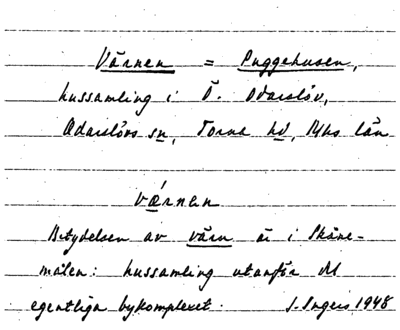 Värnen = Puggehusen,
hussamling i Ö. Odarslöv,
Odarslövs sn, Torna hd, Mhs län
værnen
Betydelsen av värn är i Skåne-
målen: hussamling utanför det
egentliga bykomplexet. I. Ingers 1948